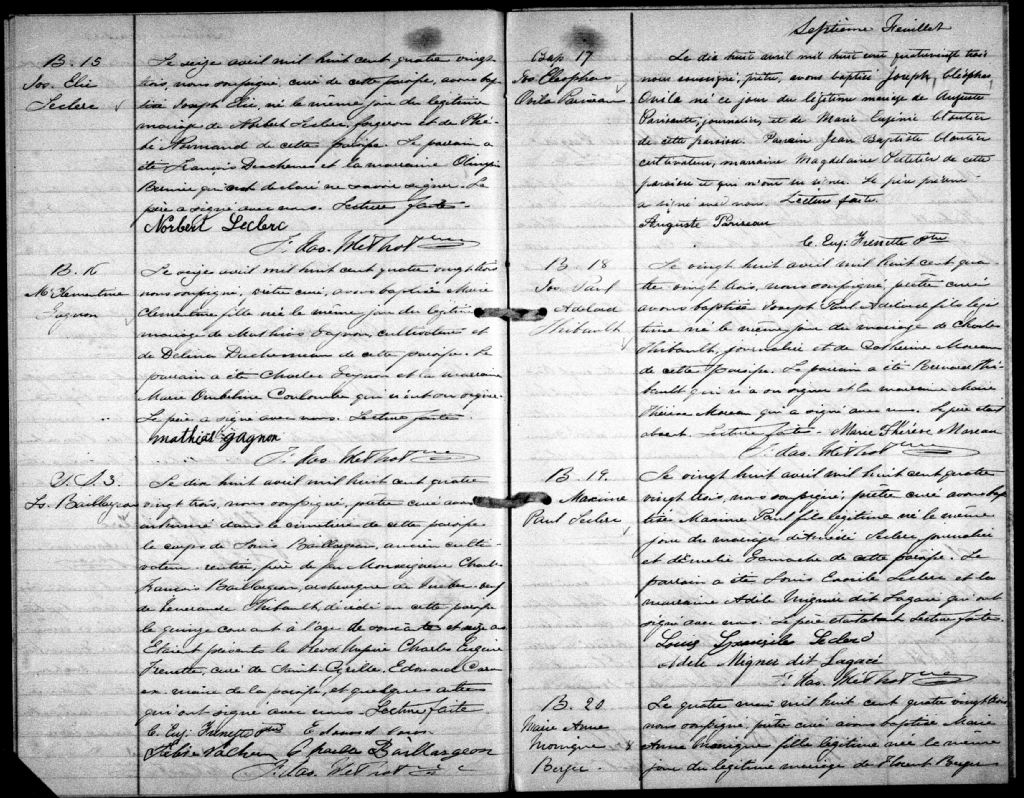 B. 15
Jos. Elie
Leclerc
Le seize avril mil huit cent quatre vingt
trois, nous soussigné, curé de cette paroisse, avons bap
tisé Joseph Elie, né le même jour du légitime
mariage de Norbert Leclerc forgeron et de Phé
bé Normand de cette paroisse. Le parrain a
été François Duchesne et la marraine
qui ont déclaré ne savoir signer. Le
père a signé avec nous. Lecture faite.
Norbert Leclerc
F. Has. Méthot ptre
B. 16
M. Clementine
Gagnon
Le seize avril mil huit cent quatre vingt trois
nous soussigné, prêtre curé, avons baptisé Marie
Clementine fille née le même jour du légitime
mariage de Mathias Gagnon, cultivateur et
de Delina Duchesneau de cette paroisse. Le
parrain a été Charles Gagnon et la marraine
Marie Ombeline Coulombe qui n'ont su signer.
Le père a signé avec nous. Lecture faite
Mathias gagnon
F. Has. Méthot ptre
S. 3
Ls. Baillargeon
Le dix huit avril mil huit cent quatre
vingt trois, nous soussigné, prêtre curé avons
inhumé dans le cimetière de cette paroisse
le corps de Louis Baillargeon, ancien culti-
vateur rentier, frère de feu Monseigneur Charles
François Baillargeon, archevêque de Québec veuf
de Vénérande Thibault, décédé en cette paroisse
le quinze courant à l'age de soixante et seize ans
Etaient présents le Révd Messire Charles Eugène
Frenette, curé de Saint Cyrille, Edouard Caron
ex-maire de la paroisse, et quelques autres
qui ont signé avec nous. Lecture faite
C. Eug. Frenette ptre Edouard Caron
Vachon Charles Baillargeon
F. Has. Méthot ptre
Septième Feuillet
Bap 17
Jos Cléophas
Ovila Pariseau
Le dix huit avril mil huit cent quatrevingt trois
nous soussigné, prêtre, avons baptisé Joseph, Cléophas
Ovila né ce jour du légitime mariage de Auguste
Pariseau, journalier, et de Marie Eugénie Cloutier
de cette paroisse. Parrain Jean Baptiste Cloutier
cultivateur, marraine Magdelaine Pelletier de cette
paroisse et qui n'ont su signer. Le père présent
a signé avec nous. Lecture faite.
Auguste Pariseau
C. Eug. Frenette Ptre
B. 18
Jos Paul
Adelard
Thibault
Le vingt huit avril mil huit cent qua
tre vingt trois, nous soussigné, prêtre curé
avons baptisé Joseph Paul Adelard fils légi
time né le même jour du mariage de Charles
Thibault, journalier et de Catherine Moreau
de cette paroisse. Le parrain a été Thi
bault qui n'a su signer et la marraine Marie
Thérèse Moreau qui a signé avec nous. Le père était
absent. Lecture faite. Marie Thérèse Moreau
F. Has. Méthot ptre
B. 19.
Maxime
Paul Leclerc
Le vingt huit avril mil huit cent quatre
vingt trois, nous soussigné, prêtre curé avons bap
tisé Maxime Paul fils légitime né le même
jour du mariage d'Amédé Leclerc, journalier
et d'Amélie Gamache de cette paroisse. Le
parrain a été Louis Leclerc et la
marraine Adèle Mignier dit Lagacé qui ont
signé avec nous. Le père était absent Lecture faite
Louis Leclerc
Adele Mignier dit Lagacé
F. Has. Méthot ptre
B. 20
Marie Anne
Monique
Berger
Le quatre mai mil huit cent quatre vingt trois
nous soussigné, prêtre curé avons baptisé Marie
Anne Monique fille légitime née le même
jour du légitime mariage de Berger